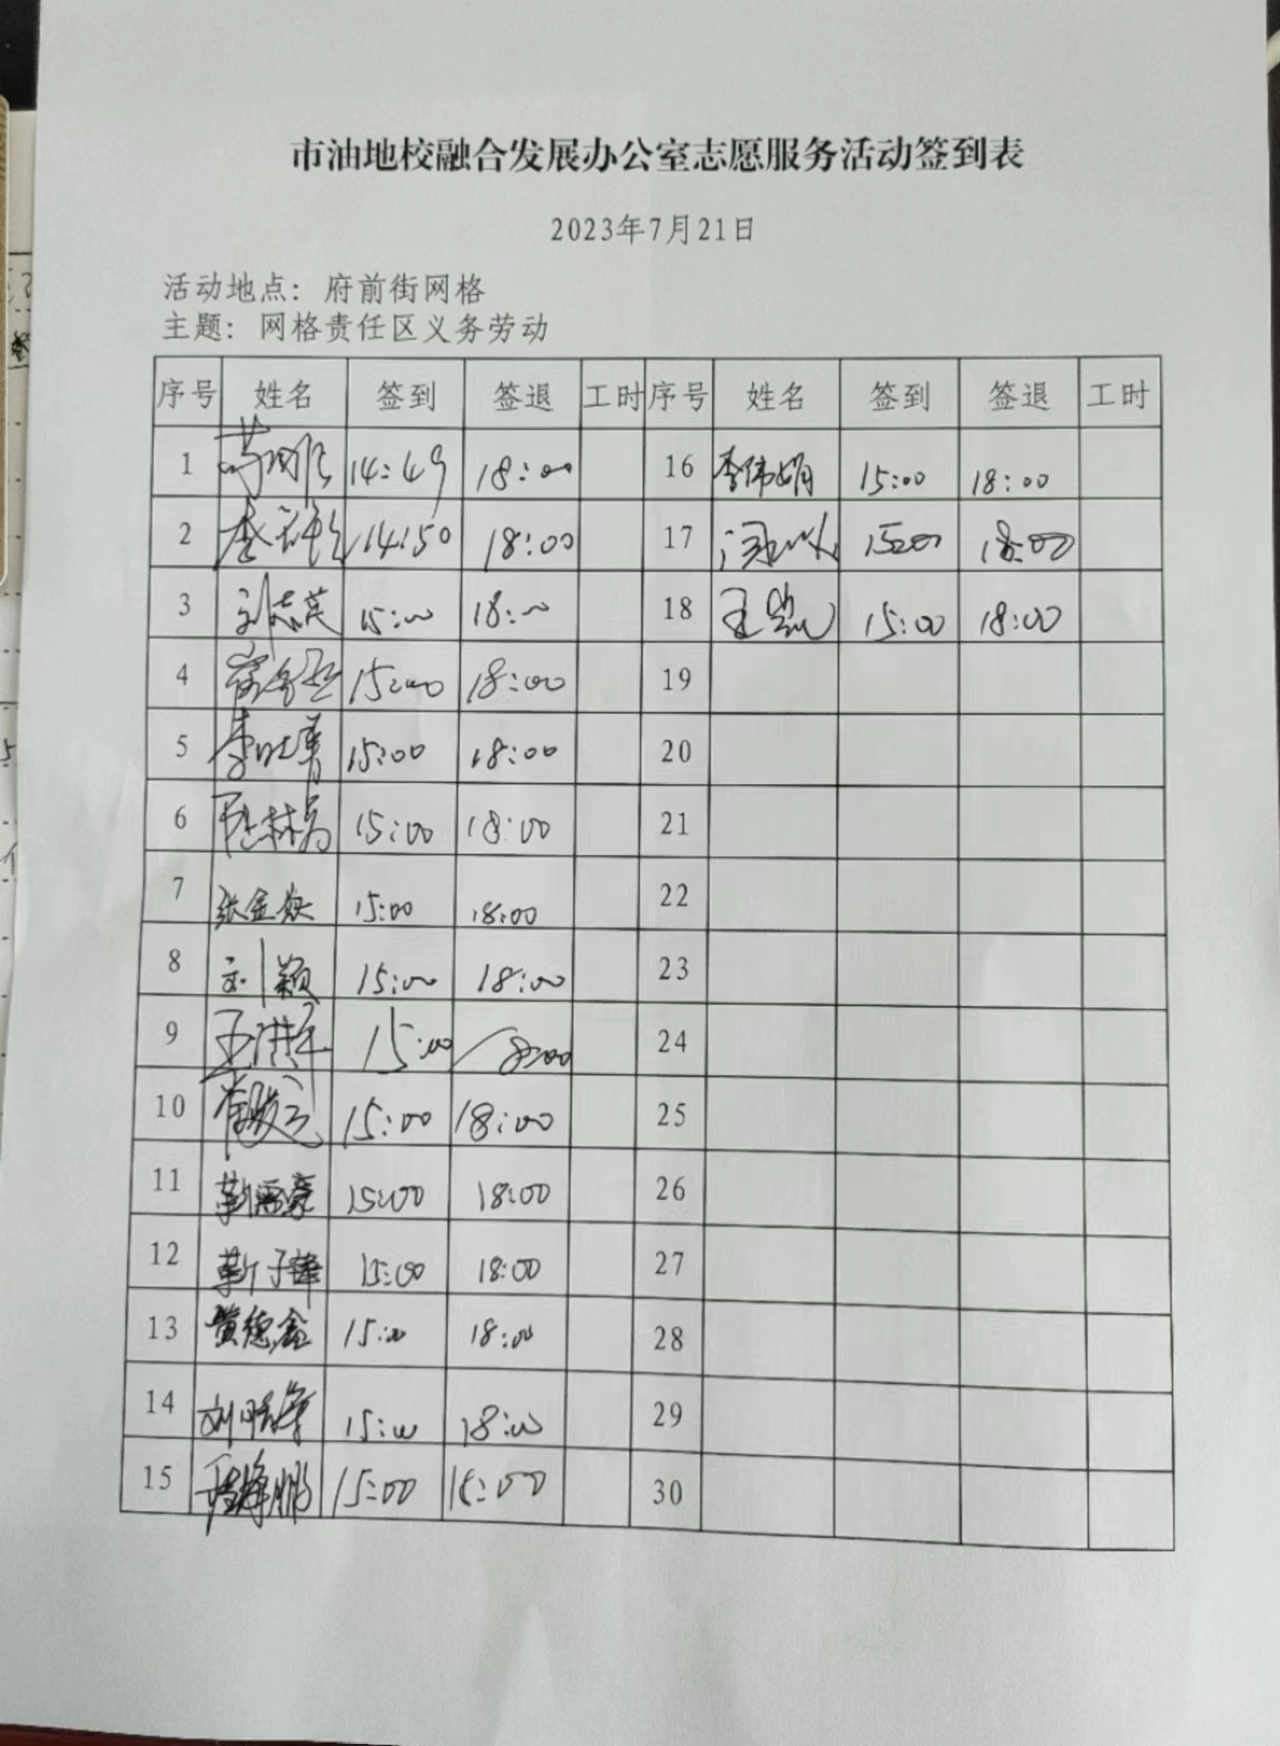 市油地校融合发展办公室志愿服务活动签到表
2023年7月21日
活动地点：府前街网格
主题：网格责任区义务劳动
序号 姓名 签到 签退 工时 序号 姓名 签到 签退 工时
1 14:49 18:00 16 李伟娟 15:00 18:00
2 14:50 18:00 17 15:00 18:00
3 刘志英 15:00 18:00 18 王凯 15:00 18:00
4 15:00 18:00 19
5 15:00 18:00 20
6 15:00 18:00 21
7 张金焕 15:00 18:00 22
8 刘颖 15:00 18:00 23
9 王洪军 15:00 18:00 24
10 15:00 18:00 25
11 靳雨豪 15:00 18:00 26
12 靳子锋 15:00 18:00 27
13 黄德鑫 15:00 18:00 28
14 15:00 18:00 29
15 15:00 18:00 30